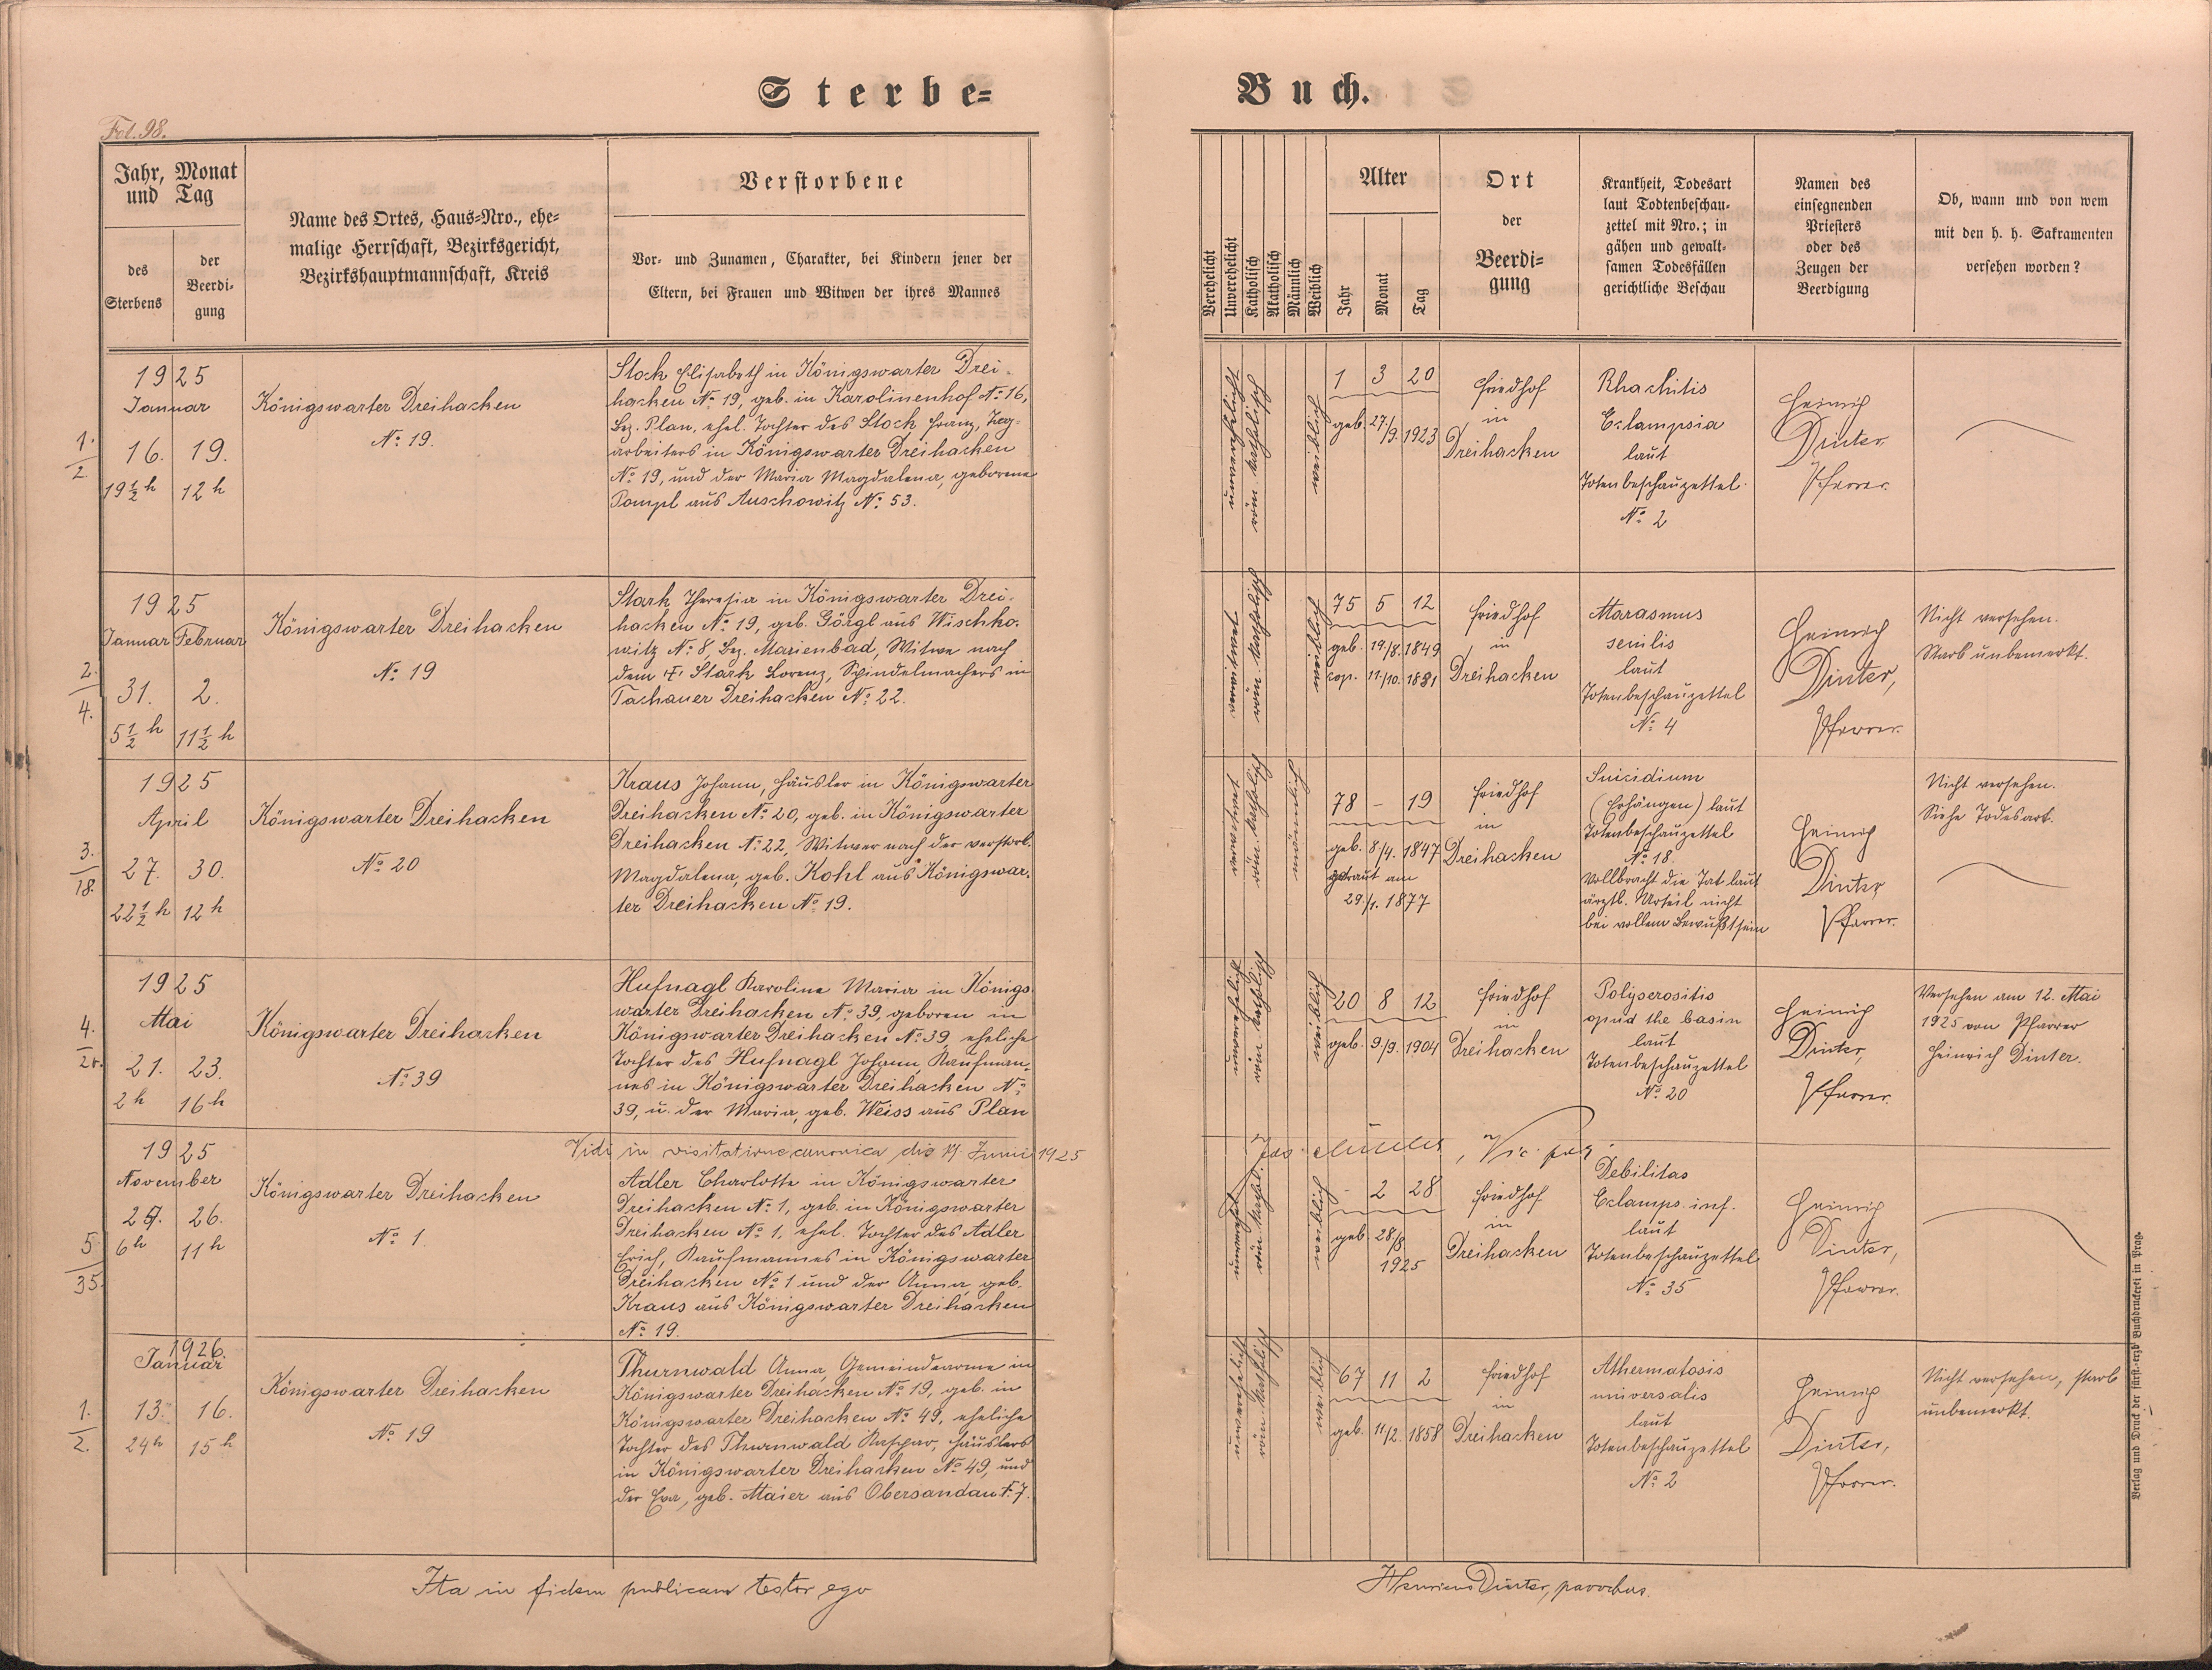 Sterbe=
Buch.
Fol. 98.
Jahr, Monat
und Tag
des
Sterbens
der
Beerdi-
gung
Name des Ortes, Haus=Nro., ehe=
malige Herrschaft, Bezirksgericht,
Bezirkshauptmannschaft, Kreis
Verstorbene
Vor- und Zunamen, Charakter, bei Kindern jener der
Eltern, bei Frauen und Witwen der ihres Mannes
Verehelicht
Unverehelicht
Katholisch
Akatholisch
Männlich
Weiblich
Alter
Jahr
Monat
Tag
Ort
der
Beerdi=
gung
Krankheit, Todesart
laut Todtenbeschau-
zettel mit Nro.; in
gähen und gewalt-
samen Todesfällen
gerichtliche Beschau
Namen des
einsegnenden
Priesters
oder des
Zeugen der
Beerdigung
Ob, wann und von wem
mit den h. h. Sakramenten
versehen worden?
1.
2
1925
Januar
16. 19.
19½ h 12 h
Königswarter Dreihacken
No 19.
Stock Elisabeth in Königswarter Drei-
hacken No 19, geb. in Karolinenhof No 16,
Bez. Plan, ehel. Tochter des Stock Franz, Tag-
arbeiters in Königswarter Dreihacken
No 19, und der Maria Magdalena, geborene
Pompl aus Auschowitz No 53.
unverehelicht
röm. katholisch
weiblich
1 3 20
geb. 27/9. 1923
Friedhof
in
Dreihacken
Rhachitis
Eclampsia
laut
Totenbeschauzettel
No 2
Heinrich
Dinter
Pfarrer.
2.
4.
1925
Januar Februar
31. 2.
5½ h 11½ h
Königswarter Dreihacken
No 19
Stark Theresia in Königswarter Drei-
hacken No 19, geb. Görgl aus Wischko-
witz No 8, Bez. Marienbad, Witwe nach
dem † Stark Lorenz, Spindelmachers in
Tachauer Dreihacken No 22.
verwitwet
röm. katholisch
weiblich
75 5 12
geb. 19/8. 1849
cop. 11/10. 1881
Friedhof
in
Dreihacken
Marasmus
senilis
laut
Totenbeschauzettel
No 4
Heinrich
Dinter,
Pfarrer.
Nicht versehen.
Starb unbemerkt.
3.
18.
1925
April
27. 30.
22½ h 12 h
Königswarter Dreihacken
No 20
Kraus Johann, Häusler in Königswarter
Dreihacken No 20, geb. in Königswarter
Dreihacken No 22, Witwer nach der verstorb.
Magdalena, geb. Kohl aus Königswar-
ter Dreihacken No 19.
verwitwet
röm. katholisch
männlich
78 – 19
geb. 8/4. 1847
getraut am
29./1. 1877
Friedhof
in
Dreihacken
Suicidium
(Erhängen) laut
Totenbeschauzettel
No 18.
Vollbracht die Tat laut
ärztl. Urteil nicht
bei vollem Bewußtsein
Heinrich
Dinter,
Pfarrer.
Nicht versehen.
Siehe Todesart.
4.
20.
1925
Mai
21. 23.
2 h 16 h
Königswarter Dreihacken
No 39
Hufnagl Karoline Maria in Königs-
warter Dreihacken No 39, geboren in
Königswarter Dreihacken No 39, eheliche
Tochter des Hufnagl Johann, Kaufman-
nes in Königswarter Dreihacken No
39, u. der Maria, geb. Weiss aus Plan
unverehelicht
röm. katholisch
weiblich
20 8 12
geb. 9/9. 1904
Friedhof
in
Dreihacken
Polyserositis
apud the basin
laut
Totenbeschauzettel
No 20
Heinrich
Dinter,
Pfarrer.
Versehen am 12. Mai
1925 von Pfarrer
Heinrich Dinter.
Vidi in visitatione canonica die 14. Junii 1925
5.
35.
1925
November
25. 26.
6 h 11 h
Königswarter Dreihacken
No 1.
Adler Charlotte in Königswarter
Dreihacken No 1, geb. in Königswarter
Dreihacken No 1, ehel. Tochter des Adler
Erich, Kaufmannes in Königswarter
Dreihacken No 1 und der Anna, geb.
Kraus aus Königswarter Dreihacken
No 19.
röm. kathol.
weiblich
- 2 28
geb. 28/8
1925
Friedhof
in
Dreihacken
Debilitas
Eclamps. inf.
laut
Totenbeschauzettel
No 35
Heinrich
Dinter,
Pfarrer.
1.
2.
1926.
Januar
13. 16.
24 h 15 h
Königswarter Dreihacken
No 19
Thurnwald Anna, Gemeindearme in
Königswarter Dreihacken No 19, geb. in
Königswarter Dreihacken No 49, eheliche
Tochter des Thurnwald Kaspar, Häuslers
in Königswarter Dreihacken No 49, und
der Eva, geb. Maier aus Obersandau No 7.
unverehelicht
röm. katholisch
weiblich
67 11 2
geb. 11/2. 1858
Friedhof
in
Dreihacken
Athermatosis
universalis
laut
Totenbeschauzettel
No 2
Heinrich
Dinter,
Pfarrer.
Nicht versehen, starb
unbemerkt.
Ita in fidem publicam testor ego
Henricus Dinter, parochus.
Verlag und Druck der fürst.-erzb Buchdruckerei in Prag.